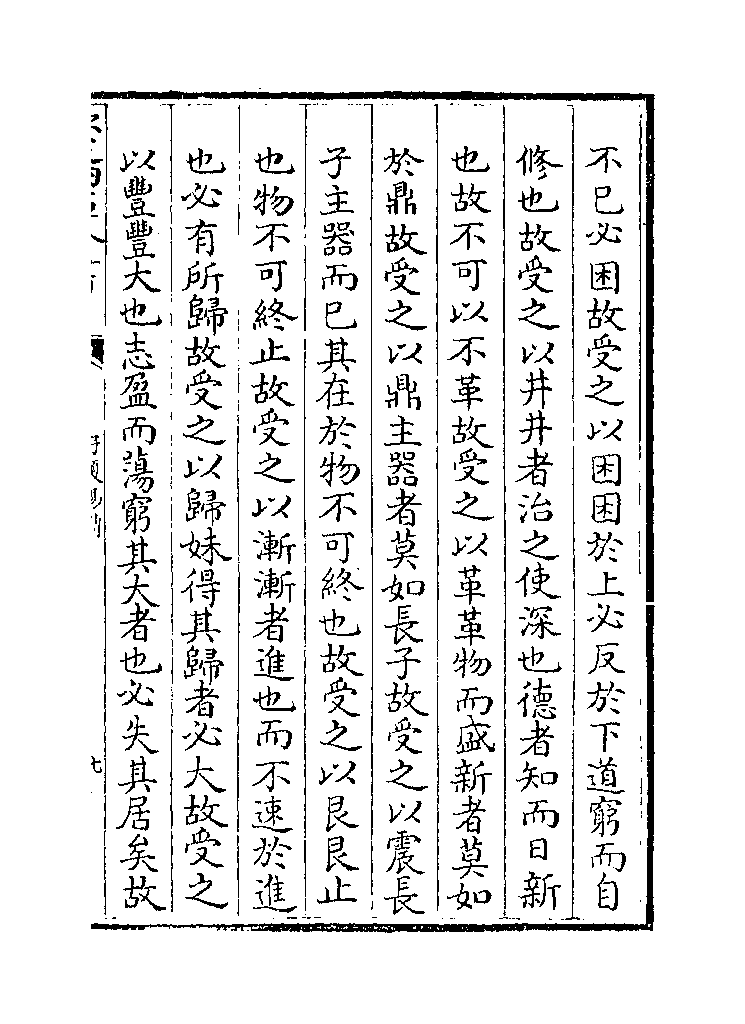 不已必困故受之以困困於上必反於下道窮而自
修也故受之以井井者治之使深也德者知而日新
也故不可以不革故受之以革革物而盛新者莫如
於鼎故受之以鼎主器者莫如長子故受之以震長
子主器而已其在於物不可終也故受之以艮艮止
也物不可終止故受之以漸漸者進也而不速於進
也必有所歸故受之以歸妹得其歸者必大故受之
以豐豐大也志盈而蕩窮其大者也必失其居矣故
九